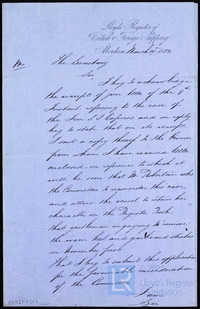 Lloyd's Register of
British & Foreign Shipping
March 1882
The Secretary
Sir
I beg to acknowledge
the receipt of your letter of the 9th
Instant referring to the case of
the Iron S.S. Express and in reply
beg to state that on its receipt
I sent a copy thereof to the Owner
from whom I have received letter
enclosed, on reference to which it
will be seen that Mr Robertson asks
the Committee to reconsider this case
and allow the vessel to retain her
character in the Register Book,
that gentleman engaging to remove
the worn keel and garboard strakes
in November first.
That I beg to submit this application
for the favourable consideration
of the Committee
I am
Sir
Lloyd's Register